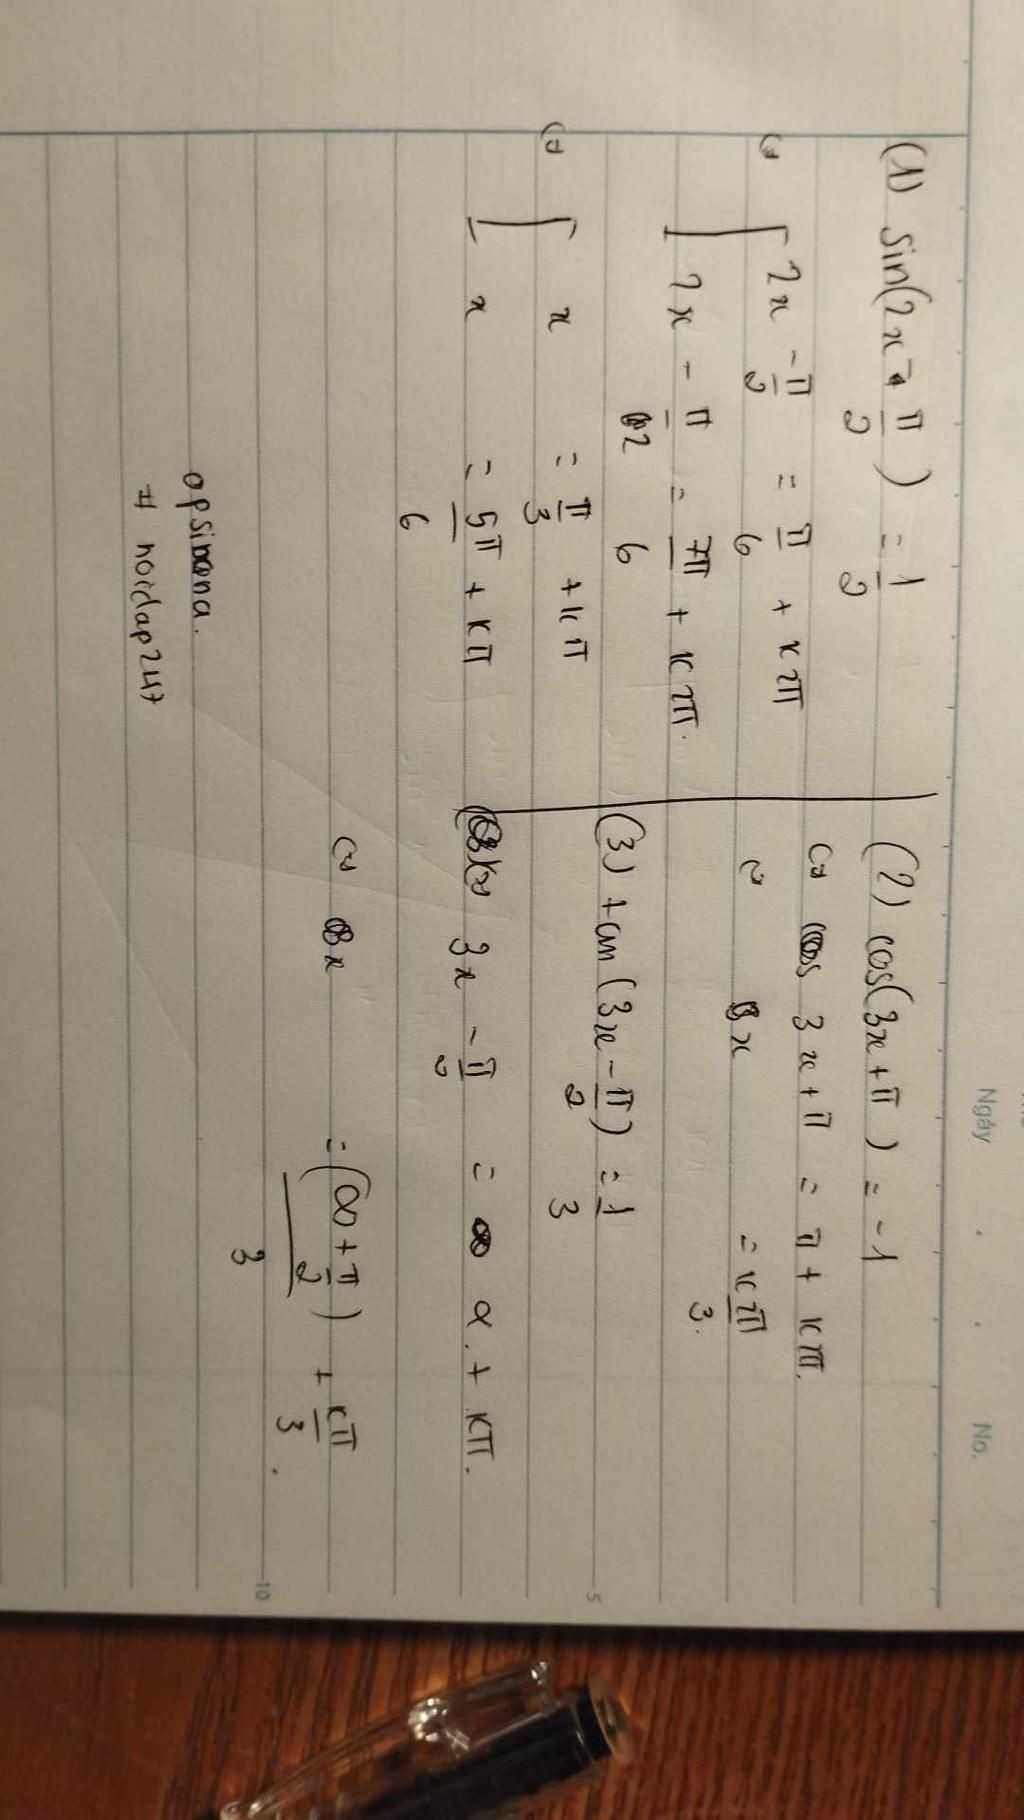 Ngày . . No.
(1) sin(2x - π/2) = 1/2
⇔ [ 2x - π/2 = π/6 + k2π
2x - π/2 = 7π/6 + k2π.
⇔ [ x = π/3 + kπ
x = 5π/6 + kπ
opsimona.
# hoidap247
(2) cos(3x + π) = -1
⇔ 3x + π = π + k2π.
⇔ x = k2π/3.
(3) tan(3x - π/2) = 1/3
⇔ 3x - π/2 = α + kπ.
⇔ x = (α + π/2)/3 + kπ/3.
5
10